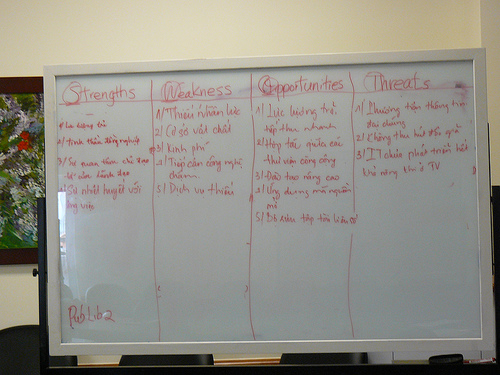 Strengths
1/ Lực lượng trẻ
2/ Tinh thần đồng nghiệp
3/ Sự quan tâm chỉ đạo
từ cấp lãnh đạo
4/ Sự nhiệt huyết với
công việc
Weakness
1/ Thiếu nhân lực
2/ Cơ sở vật chất
3/ Kinh phí
4/ Tiếp cận công nghệ
chậm
5/ Dịch vụ thiếu
Opportunities
1/ Lực lượng trẻ
tiếp thu nhanh
2/ Hợp tác giữa các
thư viện công cộng
3/ Đào tạo nâng cao
4/ Ứng dụng mã nguồn
mở
5/
Threats
1/ Phương tiện thông tin
đại chúng
2/ Không thu hút độc giả
3/ IT chưa phát triển hết
khả năng thi ở TV
PubLib2